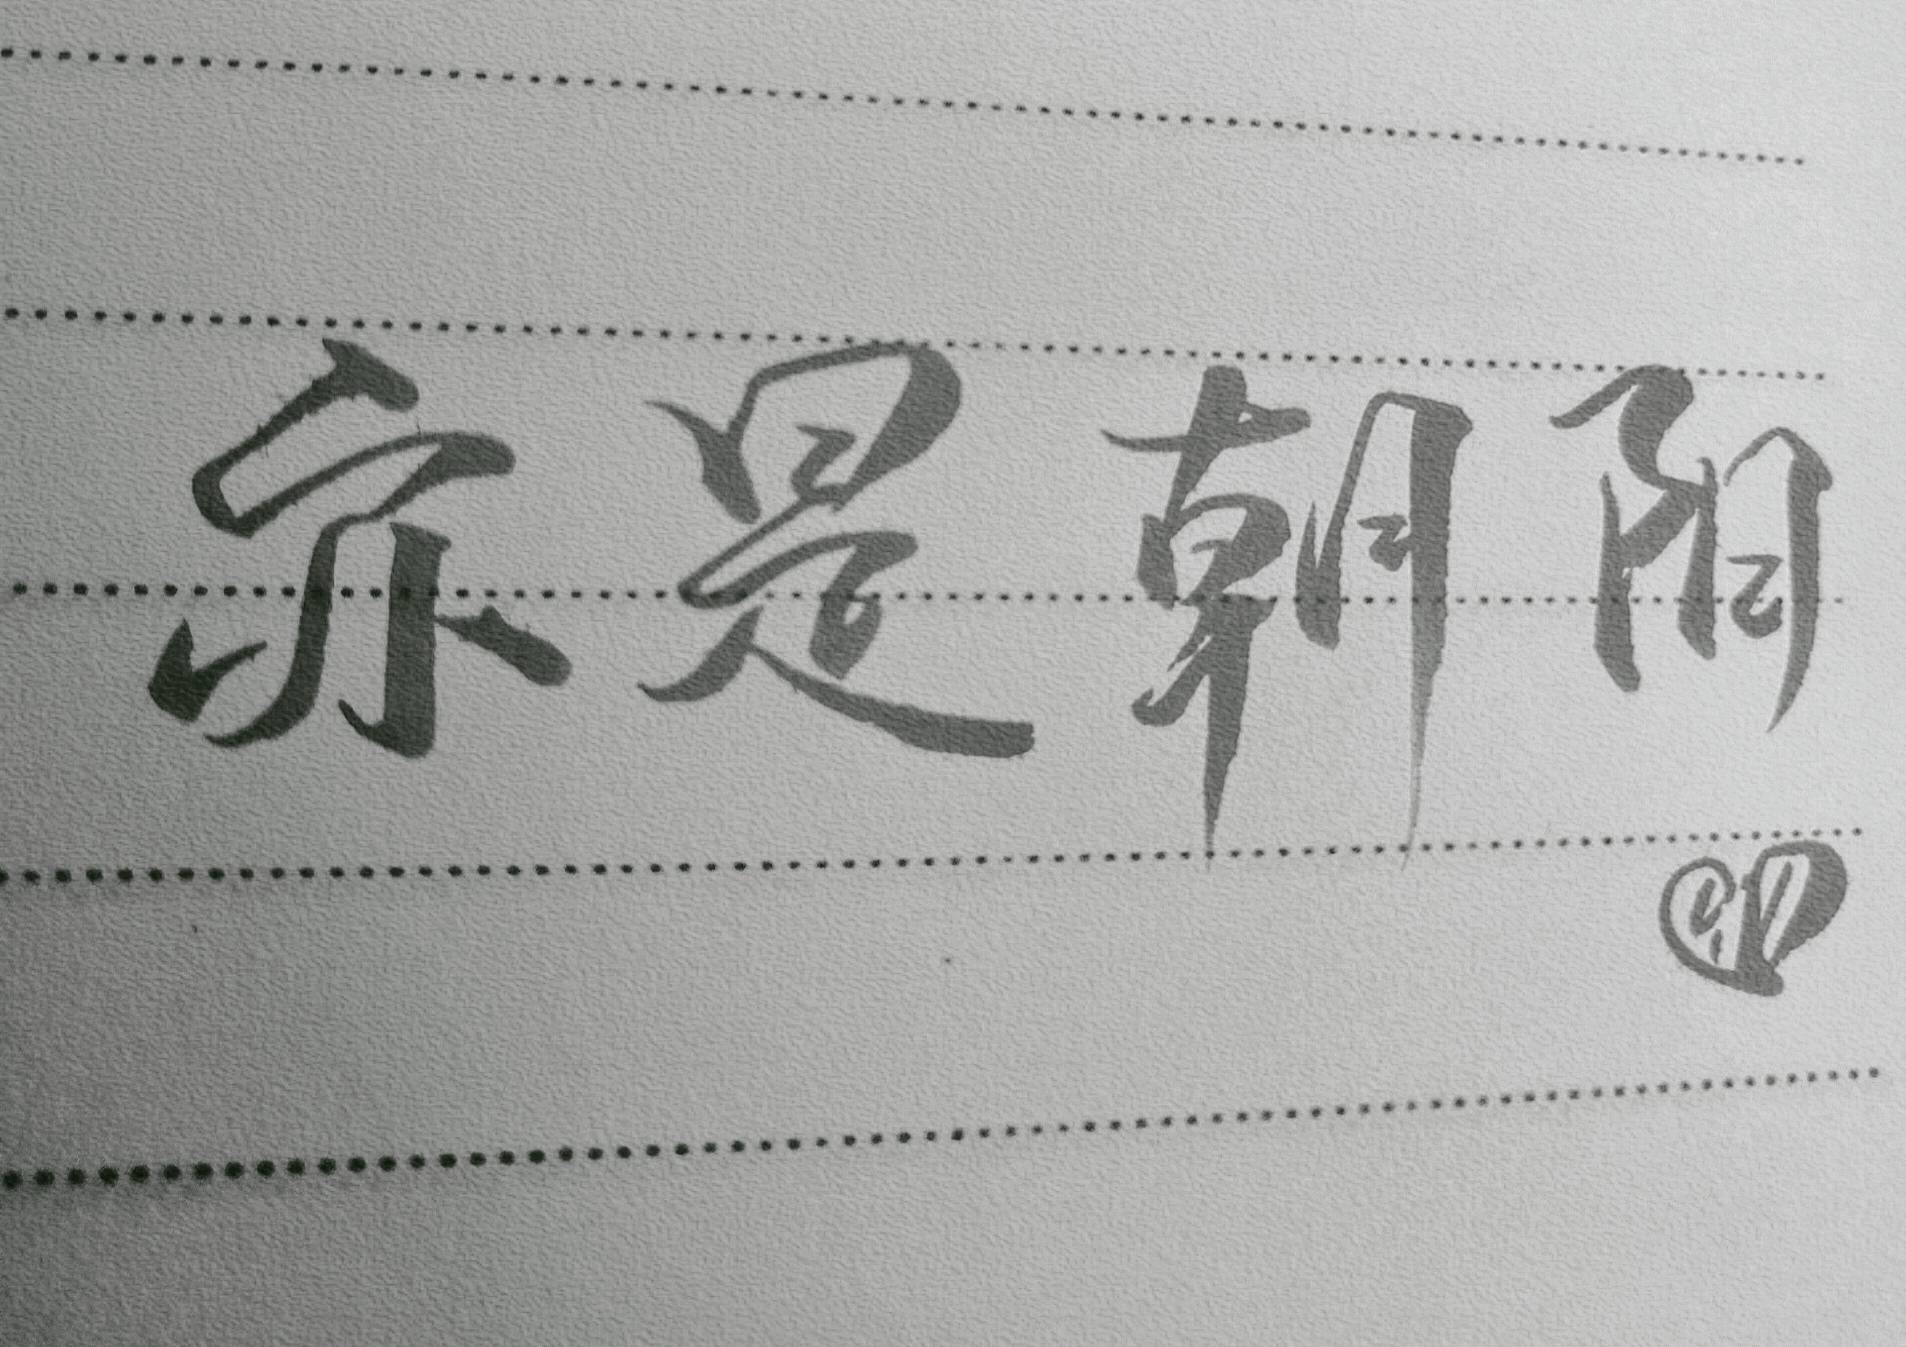 亦是朝阳